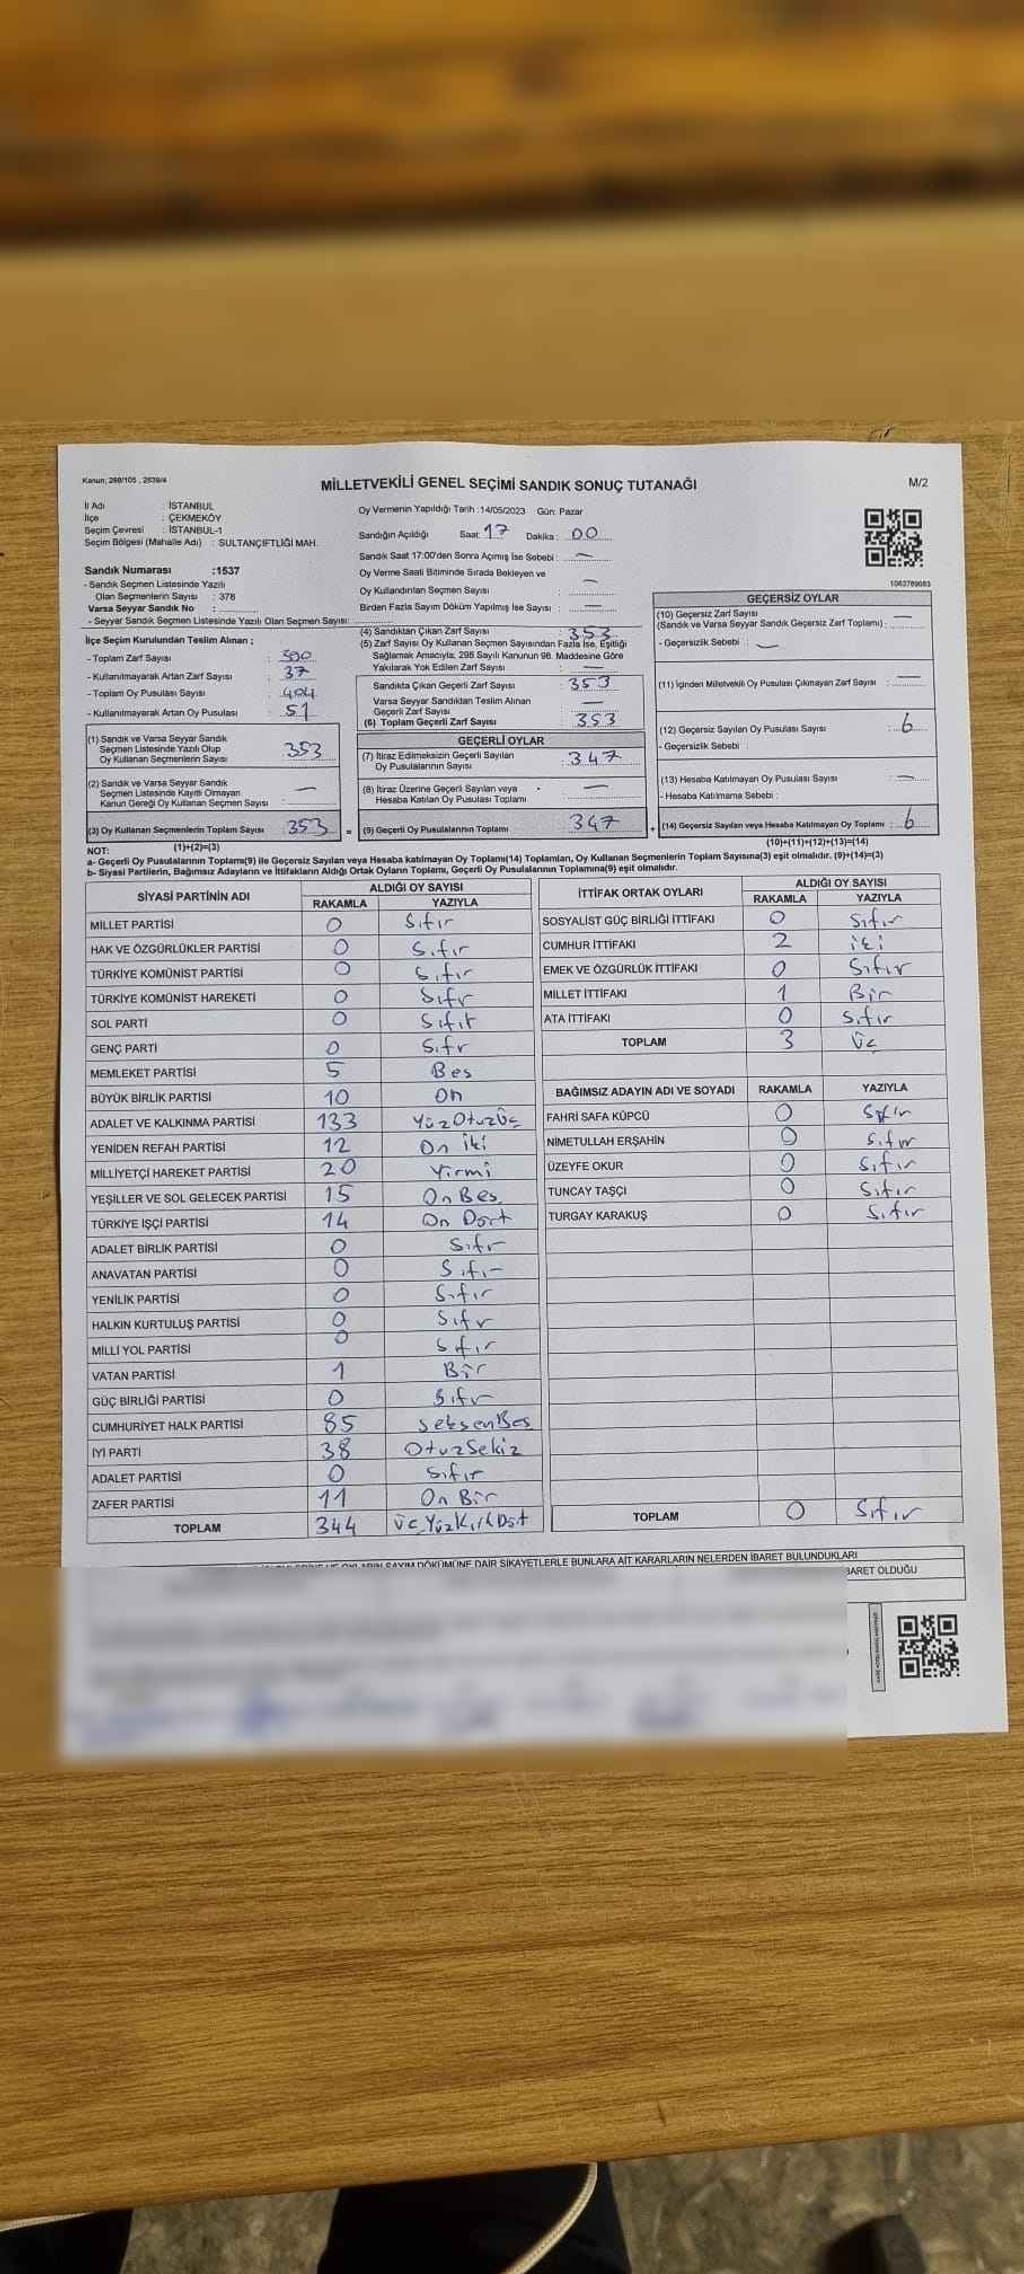 Kanun; 298/105 , 2839/4
MİLLETVEKİLİ GENEL SEÇİMİ SANDIK SONUÇ TUTANAĞI
M/2
İl Adı : İSTANBUL
İlçe : ÇEKMEKÖY
Seçim Çevresi : İSTANBUL-1
Seçim Bölgesi (Mahalle Adı) : SULTANÇİFTLİĞİ MAH.
Sandık Numarası :1537
- Sandık Seçmen Listesinde Yazılı
Olan Seçmenlerin Sayısı : 378
Varsa Seyyar Sandık No :
- Seyyar Sandık Seçmen Listesinde Yazılı Olan Seçmen Sayısı:
Oy Vermenin Yapıldığı Tarih :14/05/2023 Gün: Pazar
Sandığın Açıldığı Saat: 17 Dakika : 00
Sandık Saat 17:00'den Sonra Açımış İse Sebebi : —
Oy Verme Saati Bitiminde Sırada Bekleyen ve
Oy Kullandırılan Seçmen Sayısı : —
Birden Fazla Sayım Döküm Yapılmış İse Sayısı : —
1063789083
İlçe Seçim Kurulundan Teslim Alınan ;
- Toplam Zarf Sayısı : 390
- Kullanılmayarak Artan Zarf Sayısı : 37
- Toplam Oy Pusulası Sayısı : 404
- Kullanılmayarak Artan Oy Pusulası : 51
(1) Sandık ve Varsa Seyyar Sandık
Seçmen Listesinde Yazılı Olup
Oy Kullanan Seçmenlerin Sayısı : 353
(2) Sandık ve Varsa Seyyar Sandık
Seçmen Listesinde Kayıtlı Olmayan
Kanun Gereği Oy Kullanan Seçmen Sayısı : —
(3) Oy Kullanan Seçmenlerin Toplam Sayısı : 353
(1)+(2)=(3)
(4) Sandıktan Çıkan Zarf Sayısı : 353
(5) Zarf Sayısı Oy Kullanan Seçmen Sayısından Fazla İse, Eşitliği
Sağlamak Amacıyla, 298 Sayılı Kanunun 98. Maddesine Göre
Yakılarak Yok Edilen Zarf Sayısı : —
Sandıkta Çıkan Geçerli Zarf Sayısı : 353
Varsa Seyyar Sandıktan Teslim Alınan
Geçerli Zarf Sayısı : —
(6) Toplam Geçerli Zarf Sayısı : 353
GEÇERLİ OYLAR
(7) İtiraz Edilmeksizin Geçerli Sayılan
Oy Pusulalarının Sayısı : 347
(8) İtiraz Üzerine Geçerli Sayılan veya
Hesaba Katılan Oy Pusulası Toplamı : —
= (9) Geçerli Oy Pusulalarının Toplamı : 347
GEÇERSİZ OYLAR
(10) Geçersiz Zarf Sayısı
(Sandık ve Varsa Seyyar Sandık Geçersiz Zarf Toplamı) : —
- Geçersizlik Sebebi : —
(11) İçinden Milletvekili Oy Pusulası Çıkmayan Zarf Sayısı : —
(12) Geçersiz Sayılan Oy Pusulası Sayısı : 6
- Geçersizlik Sebebi :
(13) Hesaba Katılmayan Oy Pusulası Sayısı : —
- Hesaba Katılmama Sebebi :
+ (14) Geçersiz Sayılan veya Hesaba Katılmayan Oy Toplamı : 6
(10)+(11)+(12)+(13)=(14)
NOT:
a- Geçerli Oy Pusulalarının Toplamı(9) ile Geçersiz Sayılan veya Hesaba katılmayan Oy Toplamı(14) Toplamları, Oy Kullanan Seçmenlerin Toplam Sayısına(3) eşit olmalıdır. (9)+(14)=(3)
b- Siyasi Partilerin, Bağımsız Adayların ve İttifakların Aldığı Ortak Oyların Toplamı, Geçerli Oy Pusulalarının Toplamına(9) eşit olmalıdır.
SİYASİ PARTİNİN ADI ALDIĞI OY SAYISI
RAKAMLA YAZIYLA
MİLLET PARTİSİ 0 Sıfır
HAK VE ÖZGÜRLÜKLER PARTİSİ 0 Sıfır
TÜRKİYE KOMÜNİST PARTİSİ 0 Sıfır
TÜRKİYE KOMÜNİST HAREKETİ 0 Sıfr
SOL PARTİ 0 Sıfır
GENÇ PARTİ 0 Sıfr
MEMLEKET PARTİSİ 5 Bes
BÜYÜK BİRLİK PARTİSİ 10 On
ADALET VE KALKINMA PARTİSİ 133 YüzOtuzÜç
YENİDEN REFAH PARTİSİ 12 On İki
MİLLİYETÇİ HAREKET PARTİSİ 20 Yirmi
YEŞİLLER VE SOL GELECEK PARTİSİ 15 On Bes
TÜRKİYE İŞÇİ PARTİSİ 14 On Dört
ADALET BİRLİK PARTİSİ 0 Sıfr
ANAVATAN PARTİSİ 0 Sıfır
YENİLİK PARTİSİ 0 Sıfır
HALKIN KURTULUŞ PARTİSİ 0 Sıfr
MİLLİ YOL PARTİSİ 0 Sıfır
VATAN PARTİSİ 1 Bir
GÜÇ BİRLİĞİ PARTİSİ 0 Sıfr
CUMHURİYET HALK PARTİSİ 85 SeksenBes
İYİ PARTİ 38 OtuzSekiz
ADALET PARTİSİ 0 Sıfır
ZAFER PARTİSİ 11 On Bir
TOPLAM 344 ÜçYüzKırkDört
İTTİFAK ORTAK OYLARI ALDIĞI OY SAYISI
RAKAMLA YAZIYLA
SOSYALİST GÜÇ BİRLİĞİ İTTİFAKI 0 Sıfır
CUMHUR İTTİFAKI 2 iki
EMEK VE ÖZGÜRLÜK İTTİFAKI 0 Sıfır
MİLLET İTTİFAKI 1 Bir
ATA İTTİFAKI 0 Sıfır
TOPLAM 3 Üç
BAĞIMSIZ ADAYIN ADI VE SOYADI RAKAMLA YAZIYLA
FAHRİ SAFA KÜPCÜ 0 Sıfır
NİMETULLAH ERŞAHİN 0 Sıfır
ÜZEYFE OKUR 0 Sıfır
TUNCAY TAŞÇI 0 Sıfır
TURGAY KARAKUŞ 0 Sıfır
TOPLAM 0 Sıfır
OYLARIN SAYIM DÖKÜMÜNE DAİR ŞİKAYETLERLE BUNLARA AİT KARARLARIN NELERDEN İBARET BULUNDUKLARI
BARET OLDUĞU